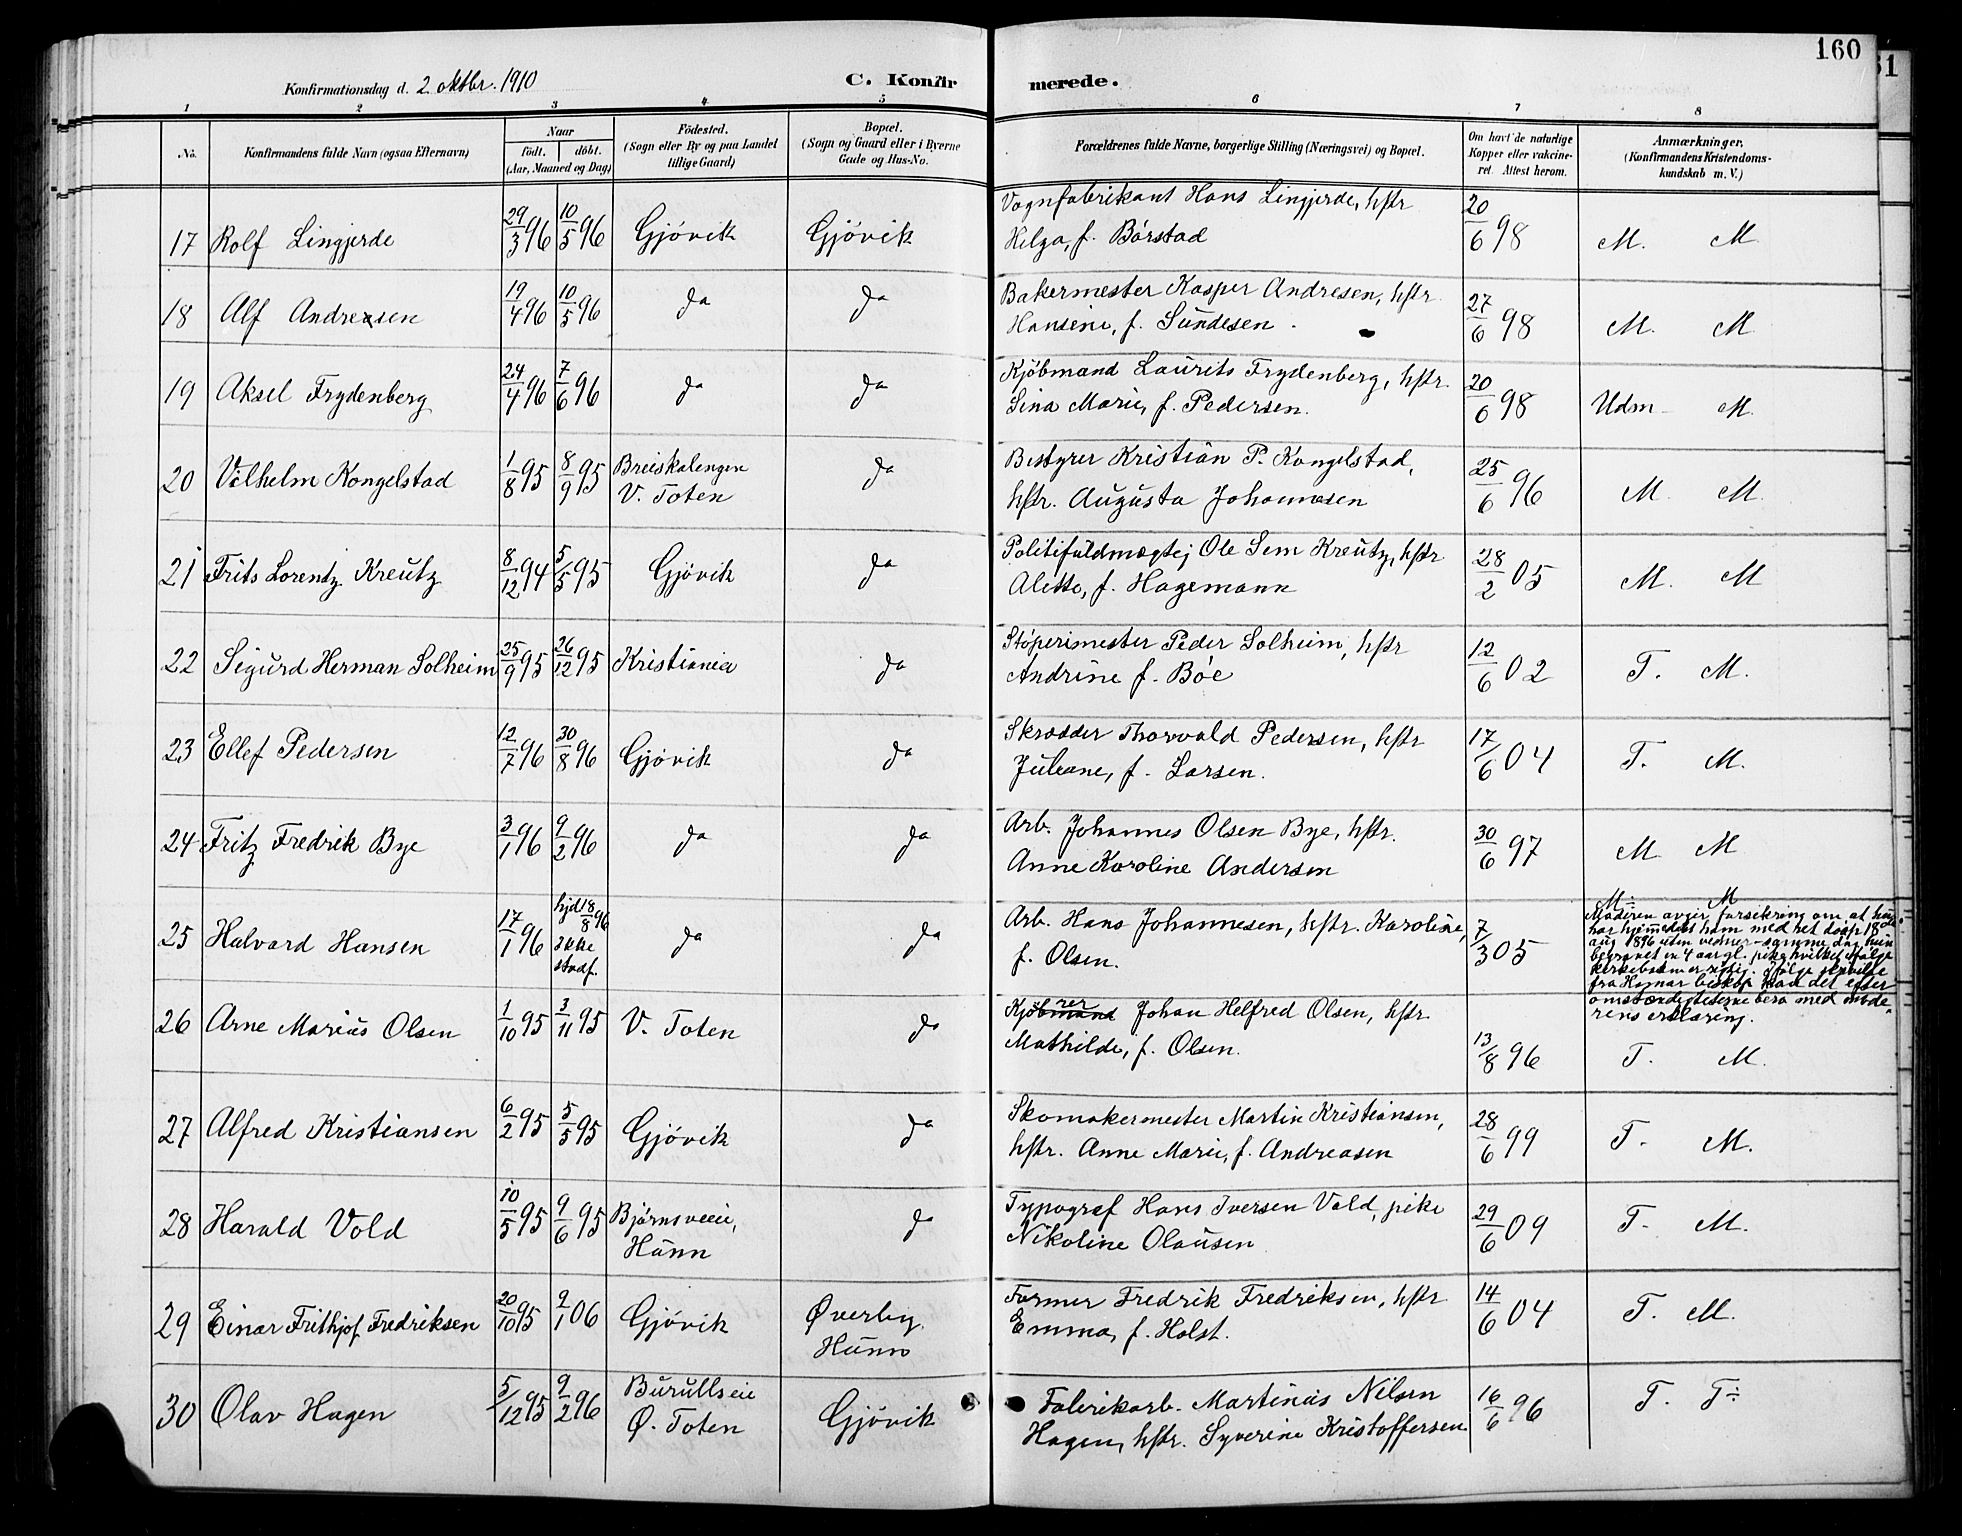 160
Konfirmationsdag d. 2. oktbr. 1910
C. Konfirmerede.
1 2 3 4 5 6 7 8
No.
Konfirmandens fulde Navn (ogsaa Efternavn)
Naar
födt. döbt.
(Aar, Maaned og Dag)
Födested.
(Sogn eller By og paa Landet
tillige Gaard)
Bopæl.
(Sogn og Gaard eller i Byerne
Gade og Hus-No.
Forældrenes fulde Navne, borgerlige Stilling (Næringsvei) og Bopæl.
Om havt de naturlige
Kopper eller vakcine-
ret. Attest herom.
Anmærkninger,
(Konfirmandens Kristendoms-
kundskab m. V.)
17 Rolf Lingjerde 29/3 96 10/5 96 Gjövik Gjövik
Vognfabrikant Hans Lingjerde, hstr
Helga, f. Börstad 20/6 98 M. M
18 Alf Andresen 19/4 96 10/5 96 da da
Bakermester Kasper Andresen, hstr
Hansine, f. Sundesen. 27/6 98 M. M
19 Aksel Frydenberg 24/4 96 7/6 96 da da
Kjöbmand Laurits Frydenberg, hstr.
Sina Marie, f. Pedersen. 20/6 98 Udm - M.
20 Vilhelm Kongelstad 1/8 95 8/9 95 Breiskalengen
V. Toten da
Bestyrer Kristian P. Kongelstad,
hstr. Augusta Johannesen 25/6 96 M. M.
21 Frits Lorentz Kreutz 8/12 94 5/5 95 Gjövik da
Politifuldmægtig Ole Sem Kreutz, hstr
Alette, f. Hagemann 28/2 05 M. M
22 Sigurd Herman Solheim 25/9 95 26/12 95 Kristiania da
Stöperimester Peder Solheim, hstr
Andrine f. Böe 12/6 02 T. M.
23 Ellef Pedersen 12/7 96 30/8 96 Gjövik da
Skrædder Thorvald Pedersen, hstr
Juliane, f. Larsen. 17/6 04 T. M.
24 Fritz Fredrik Bye 3/1 96 9/2 96 da da
Arb. Johannes Olsen Bye, hstr.
Anne Karoline Andersen 30/6 97 M. M
25 Halvard Hansen 17/1 96 hjd 18/8 96
ikke
stadf. da da
Arb. Hans Johannesen, hstr. Karoline,
f. Olsen. 7/3 05 M- M
Moderen avgir forsikring om at hun
har hjemdöbt ham med ret daap 18de
aug 1896 uten vidner - samme dag hun
begravet en 4 aar gl. pike, hvilket ifölge
kirkeboken er rigtig. Ifölge skrivelse
fra Hamar biskop kad det efter
omstændigheterne bero med mode-
rens erklæring.
26 Arne Marius Olsen 1/10 95 3/11 95 V. Toten da
Kjöbmand rer Johan Helfred Olsen, hstr
Mathilde, f. Olsen. 13/8 96 T. M.
27 Alfred Kristiansen 6/2 95 5/5 95 Gjövik da
Skomakermester Martin Kristiansen,
hstr. Anne Marie, f. Andreasen 28/6 99 T. M.
28 Harald Vold 10/5 95 9/6 95 Björnsveeie,
Hunn da
Typograf Hans Iversen Vold, pike
Nikoline Olausen 29/6 09 T. M.
29 Einar Frithjof Fredriksen 20/10 95 9/1 06 Gjövik Øverby
Hunn
Former Fredrik Fredriksen, hstr
Emma, f. Holst. 14/6 04 T. M.
30 Olav Hagen 5/12 95 9/2 96 Burullseie
Ø. Toten Gjövik
Fabrikarb. Martinus Nilsen
Hagen, hstr. Syverine Kristoffersen 16/6 96 T. T÷